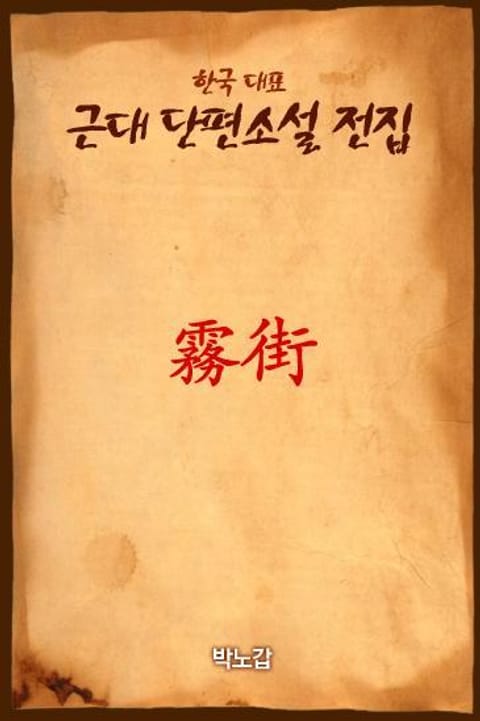 한국 대표
근대 단편소설 전집
霧街
박노갑